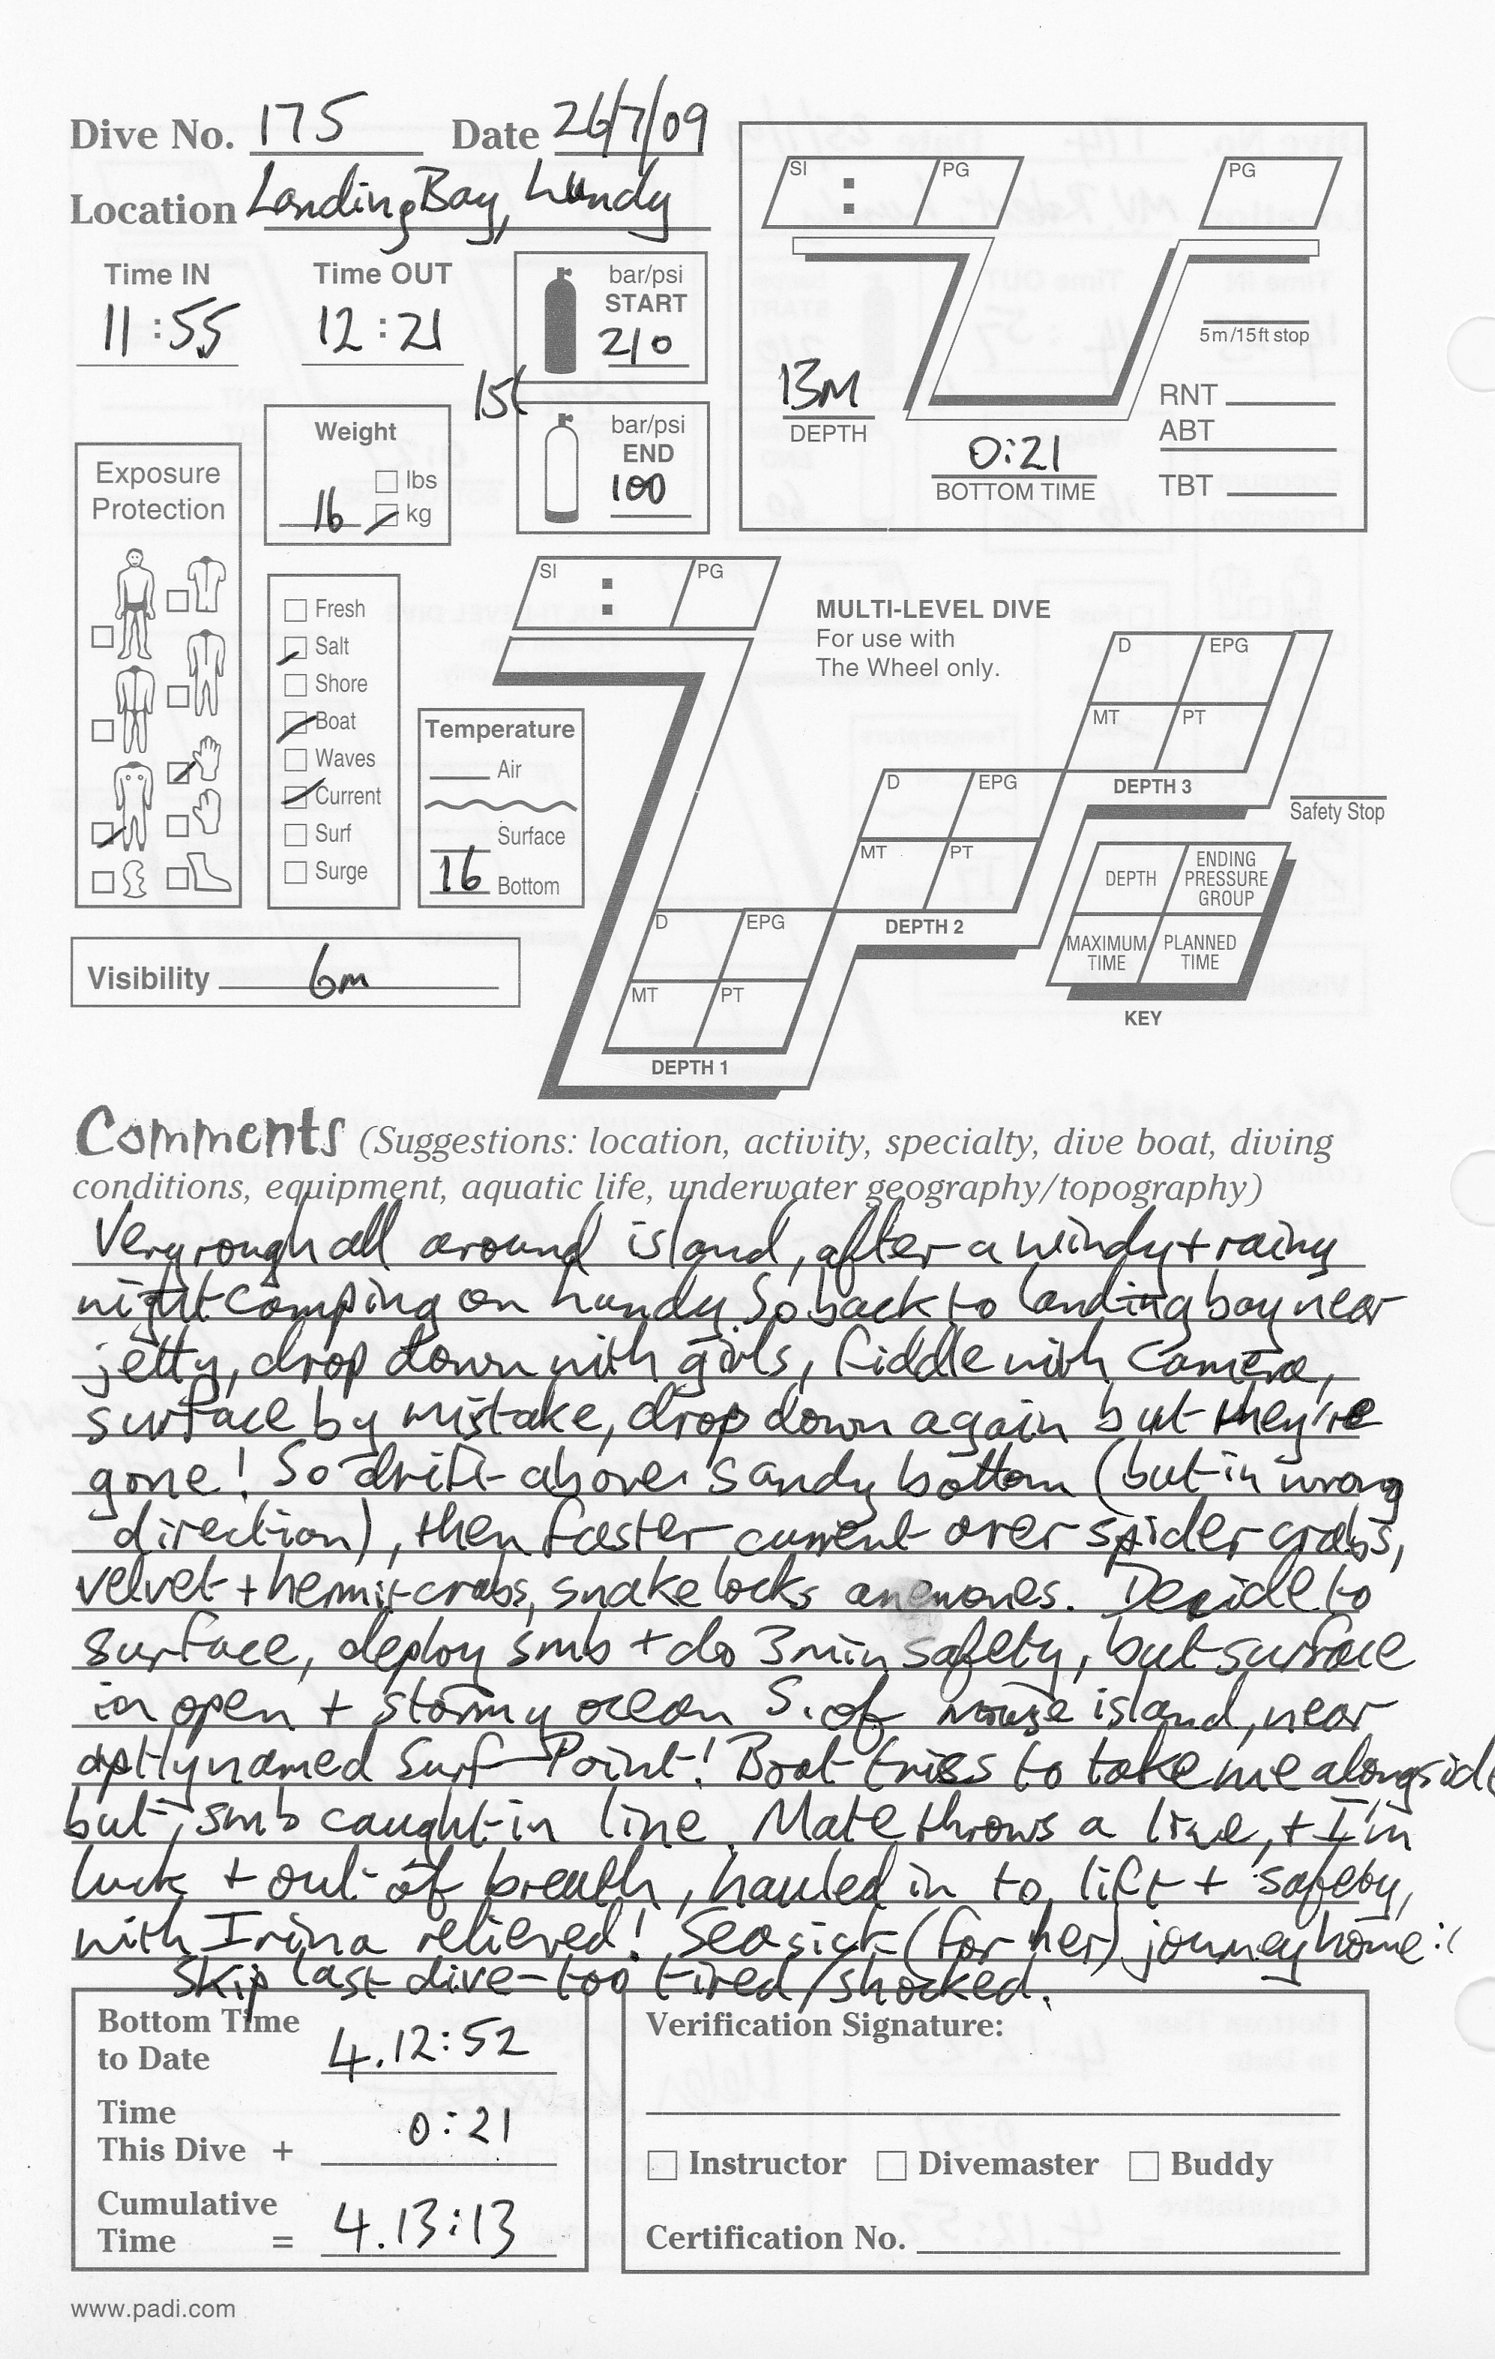 Dive No. 175 Date 26/7/09
Location Landing Bay, Lundy
Time IN Time OUT
11:55 12:21
bar/psi
START
210
15l
bar/psi
END
100
Weight
lbs
16 kg
Exposure
Protection
Fresh
Salt
Shore
Boat
Waves
Current
Surf
Surge
Temperature
Air
Surface
16 Bottom
Visibility 6m
SI : PG
PG
5m/15ft stop
13M
DEPTH
0:21
BOTTOM TIME
RNT
ABT
TBT
SI : PG
MULTI-LEVEL DIVE
For use with
The Wheel only.
D EPG
MT PT
DEPTH 3
Safety Stop
D EPG
MT PT
DEPTH 2
D EPG
MT PT
DEPTH 1
DEPTH ENDING PRESSURE GROUP
MAXIMUM TIME PLANNED TIME
KEY
Comments (Suggestions: location, activity, specialty, dive boat, diving
conditions, equipment, aquatic life, underwater geography/topography)
Very rough all around island, after a windy + rainy
night camping on Lundy. So back to landing bay near
jetty, drop down with girls, fiddle with camera,
surface by mistake, drop down again but they're
gone! So drift above sandy bottom (but in wrong
direction), then faster current over spider crabs,
velvet + hermit crabs, snakelocks anemones. Decide to
surface, deploy smb + do 3min safety, but surface
in open + stormy ocean S. of island, near
aptly named Surf Point! Boat tries to take me alongside
but smb caught in line. Mate throws a line, + I'm
luck + out of breath, hauled in to lift + safety,
with Irina relieved! Seasick (for her) journey home :(
Skip last dive - too tired/shocked.
Bottom Time
to Date 4.12:52
Time
This Dive + 0:21
Cumulative
Time = 4.13:13
Verification Signature:
Instructor Divemaster Buddy
Certification No.
www.padi.com